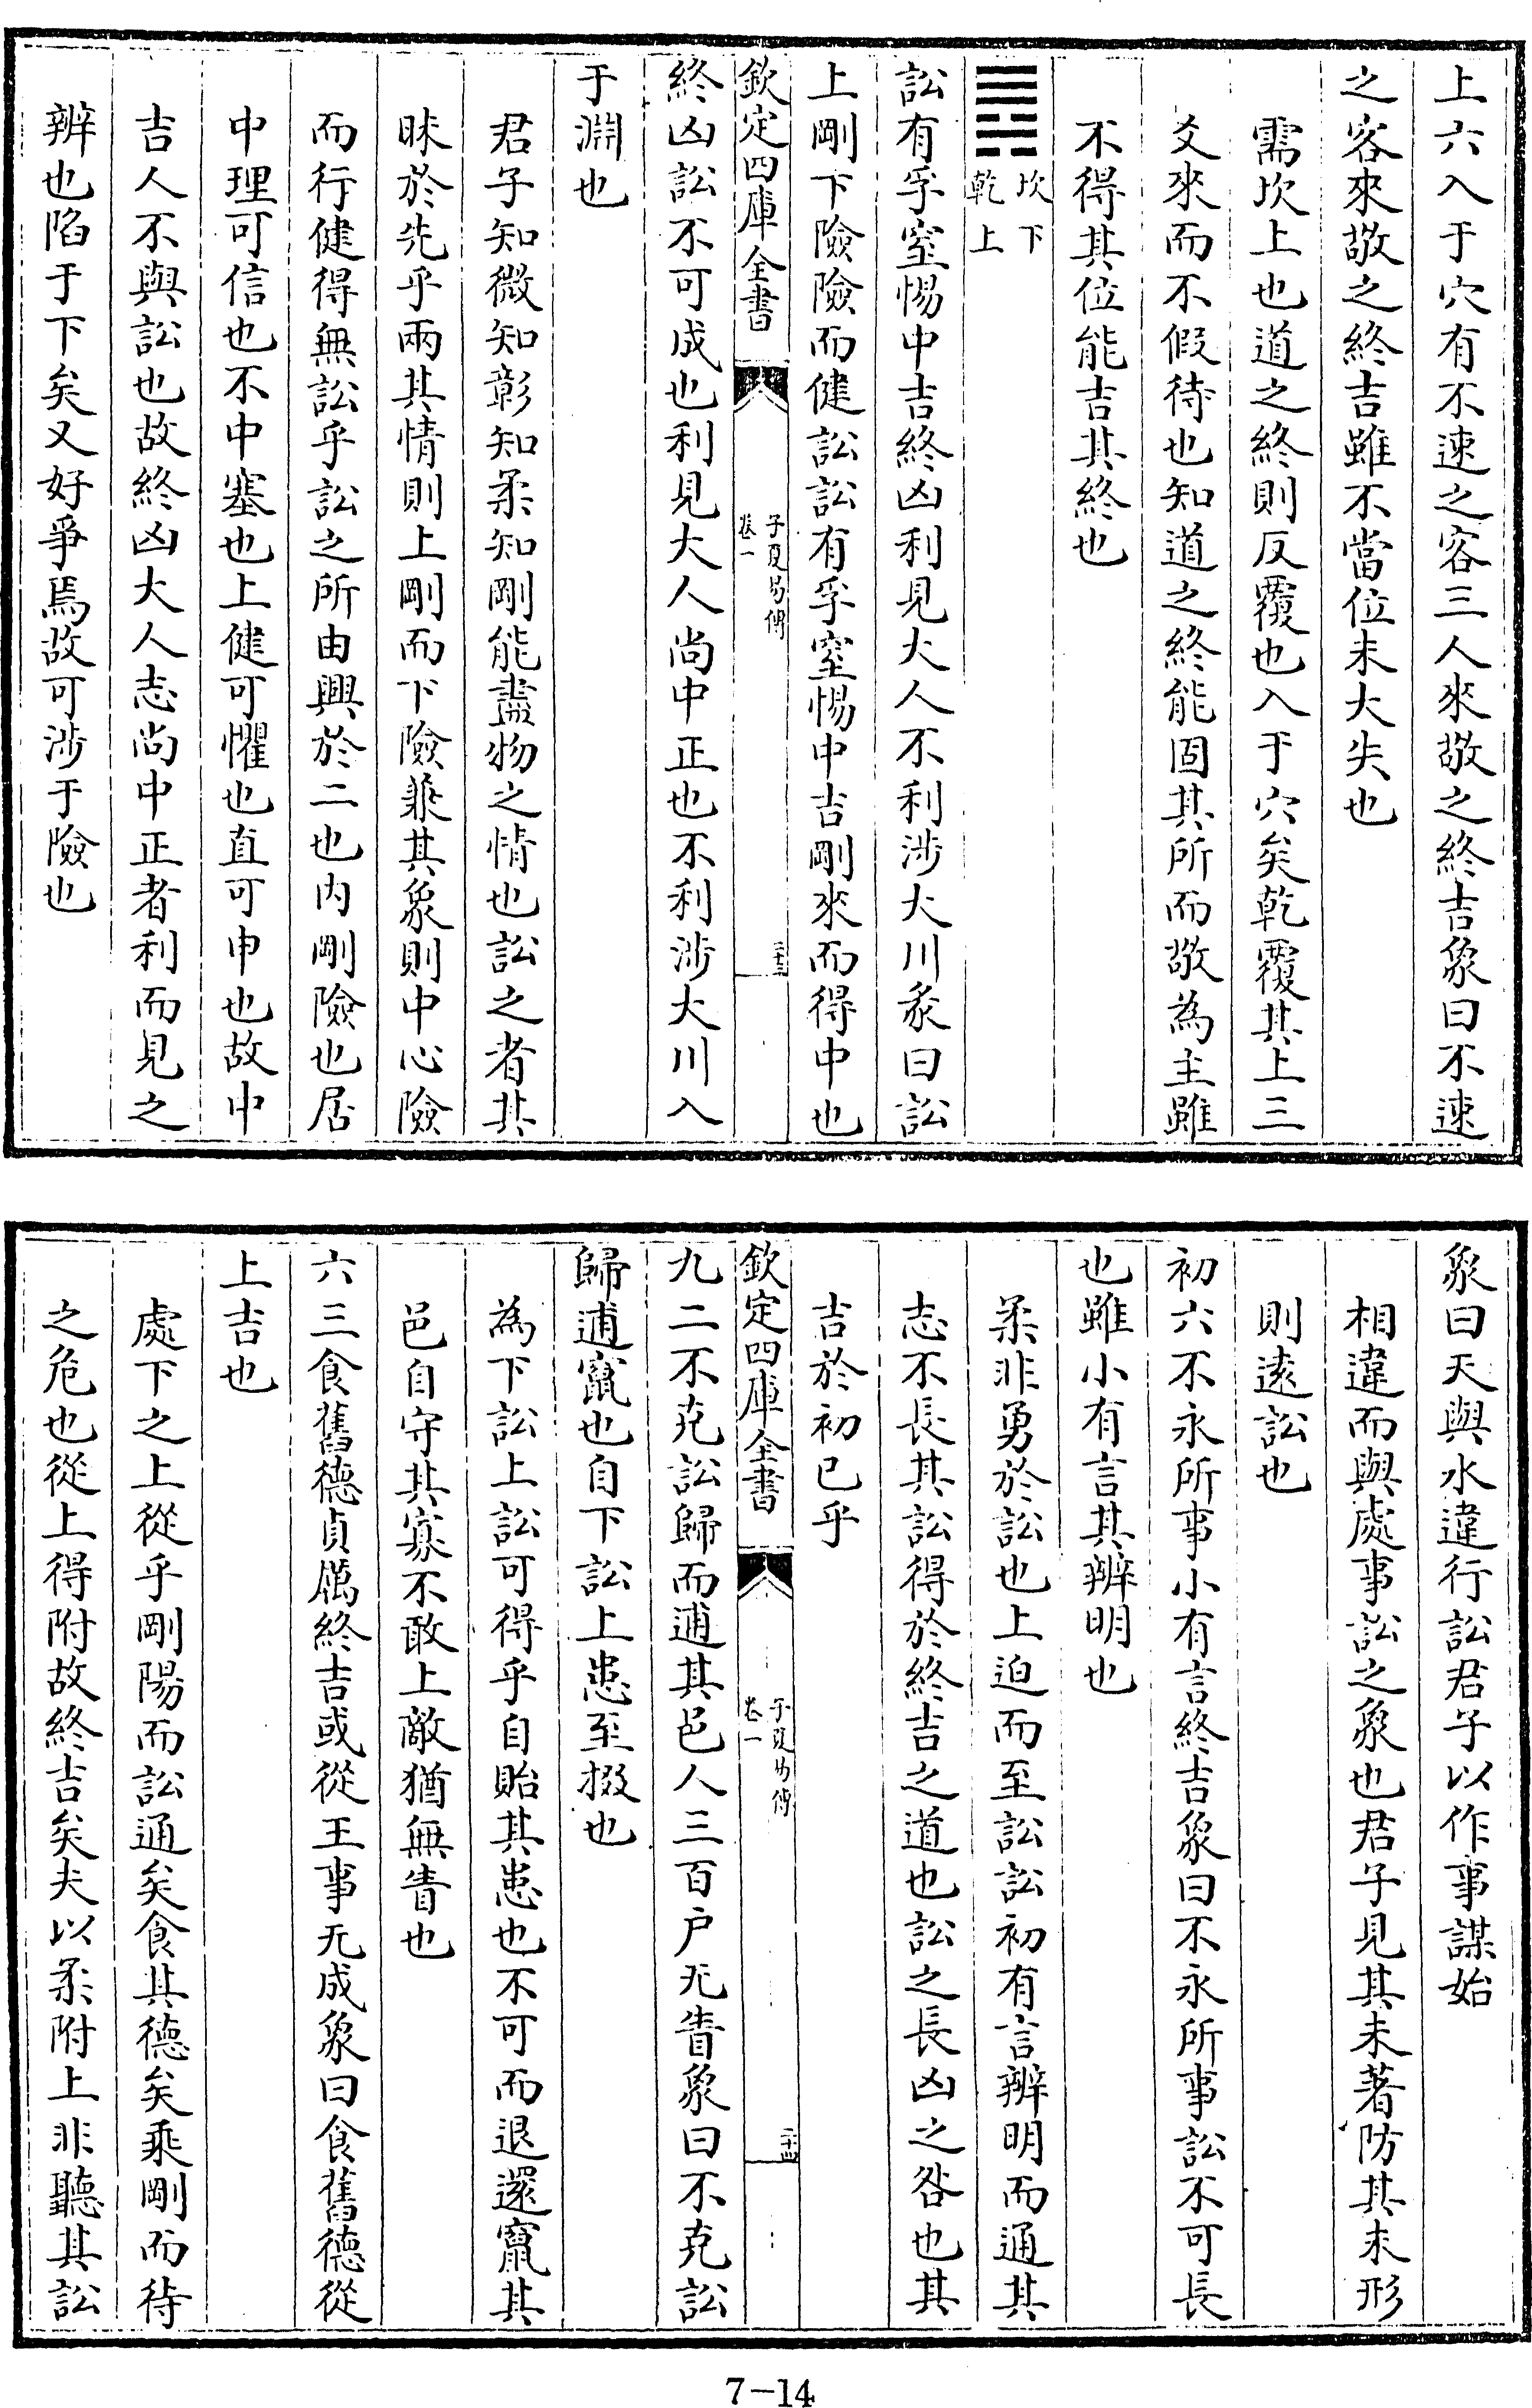 上六入于穴有不速之客三人來敬之終吉象曰不速
之客來敬之終吉雖不當位未大失也
需坎上也道之終則反覆也入于穴矣乾覆其上三
爻來而不假待也知道之終能固其所而敬為主雖
不得其位能吉其終也
䷅坎下
乾上
訟有孚窒惕中吉終凶利見大人不利涉大川彖曰訟
上剛下險險而健訟訟有孚窒惕中吉剛來而得中也
欽定四庫全書
子夏易傳
卷一
二十三
終凶訟不可成也利見大人尚中正也不利涉大川入
于淵也
君子知微知彰知柔知剛能盡物之情也訟之者其
昧於先乎兩其情則上剛而下險兼其象則中心險
而行健得無訟乎訟之所由興於二也内剛險也居
中理可信也不中塞也上健可懼也直可申也故中
吉人不與訟也故終凶大人志尚中正者利而見之
辨也陷于下矣又好爭焉故可涉于險也
象曰天與水違行訟君子以作事謀始
相違而與處事訟之象也君子見其未著防其未形
則逺訟也
初六不永所事小有言終吉象曰不永所事訟不可長
也雖小有言其辨明也
柔非勇於訟也上迫而至訟訟初有言辨明而通其
志不長其訟得於終吉之道也訟之長凶之咎也其
吉於初已乎
欽定四庫全書
子夏易傳
卷一
二十四
九二不克訟歸而逋其邑人三百户无眚象曰不克訟
歸逋竄也自下訟上患至掇也
為下訟上訟可得乎自貽其患也不可而退還竄其
邑自守其寡不敢上敵猶無眚也
六三食舊德貞厲終吉或從王事无成象曰食舊德從
上吉也
處下之上從乎剛陽而訟通矣食其德矣乘剛而待
之危也從上得附故終吉矣夫以柔附上非聽其訟
7-14